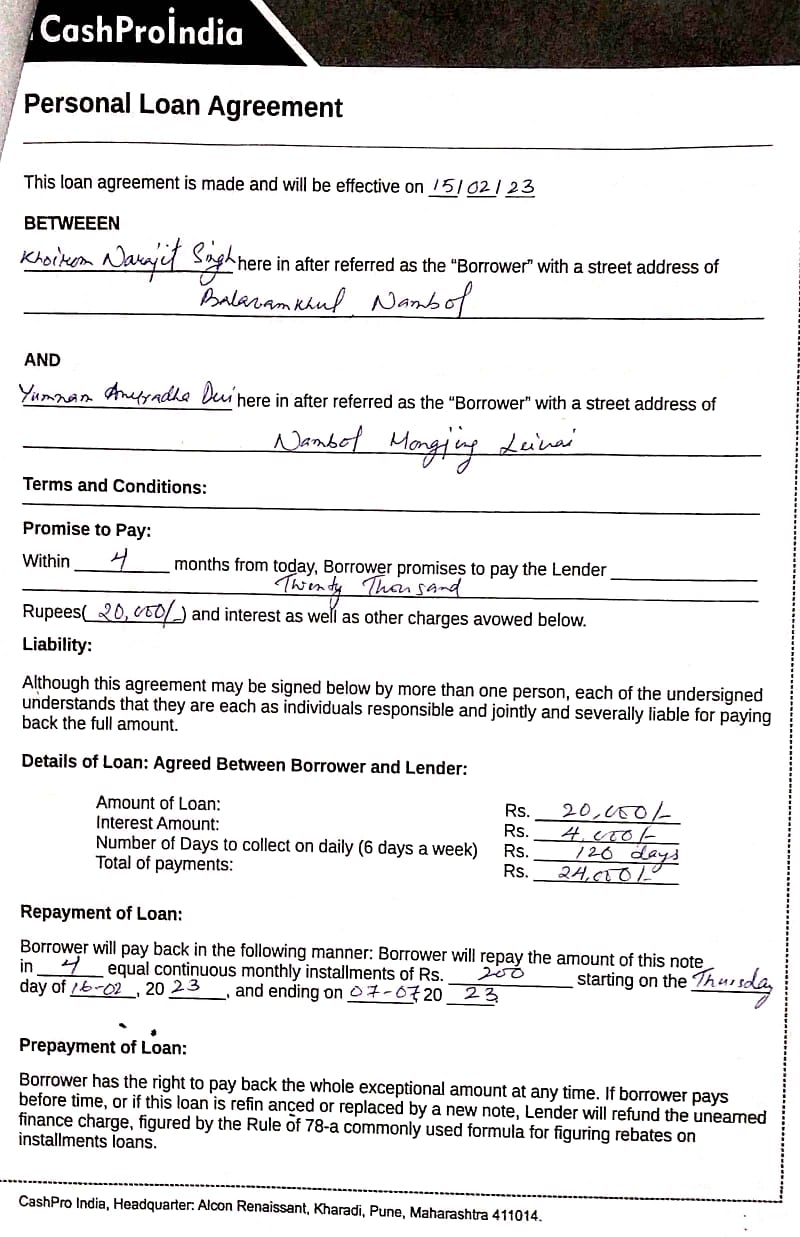 CashProIndia
Personal Loan Agreement
This loan agreement is made and will be effective on 15/02/23
BETWEEEN
Khoirom Narajit Singh here in after referred as the "Borrower" with a street address of
Balaramkhul Nambol
AND
Yumnam Anuradha Devi here in after referred as the "Borrower" with a street address of
Nambol Mongjing Leikai
Terms and Conditions:
Promise to Pay:
Within 4 months from today, Borrower promises to pay the Lender
Twenty Thousand
Rupees( 20,000/-) and interest as well as other charges avowed below.
Liability:
Although this agreement may be signed below by more than one person, each of the undersigned
understands that they are each as individuals responsible and jointly and severally liable for paying
back the full amount.
Details of Loan: Agreed Between Borrower and Lender:
Amount of Loan: Rs. 20,000/-
Interest Amount: Rs. 4,000/-
Number of Days to collect on daily (6 days a week) Rs. 120 days
Total of payments: Rs. 24,000/-
Repayment of Loan:
Borrower will pay back in the following manner: Borrower will repay the amount of this note
in 4 equal continuous monthly installments of Rs. 200 starting on the Thursday
day of 16-02, 20 23, and ending on 07-07 20 23
Prepayment of Loan:
Borrower has the right to pay back the whole exceptional amount at any time. If borrower pays
before time, or if this loan is refin anced or replaced by a new note, Lender will refund the unearned
finance charge, figured by the Rule of 78-a commonly used formula for figuring rebates on
installments loans.
CashPro India, Headquarter: Alcon Renaissant, Kharadi, Pune, Maharashtra 411014.